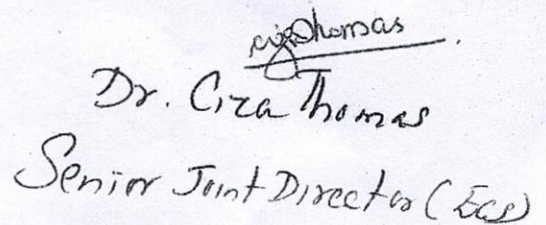 cizaThomas
Dr. Ciza Thomas
Senior Joint Director (ECS)